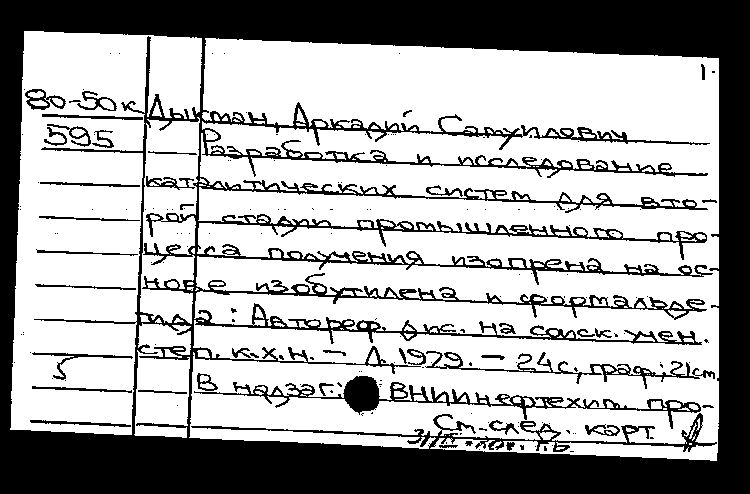 1.
80-50к Дыкман, Аркадий Самуилович
595 Разработка и исследование
каталитических систем для вто-
рой стадии промышленного про-
цесса получения изопрена на ос-
нове изобутилена и формальде-
гида: Автореф. дис. на соиск. учен.
степ. к.х.н. — Л., 1979. — 24с., граф.; 21см.
5 В надзаг.: ВНИИнефтехим. про-
См. след. карт.